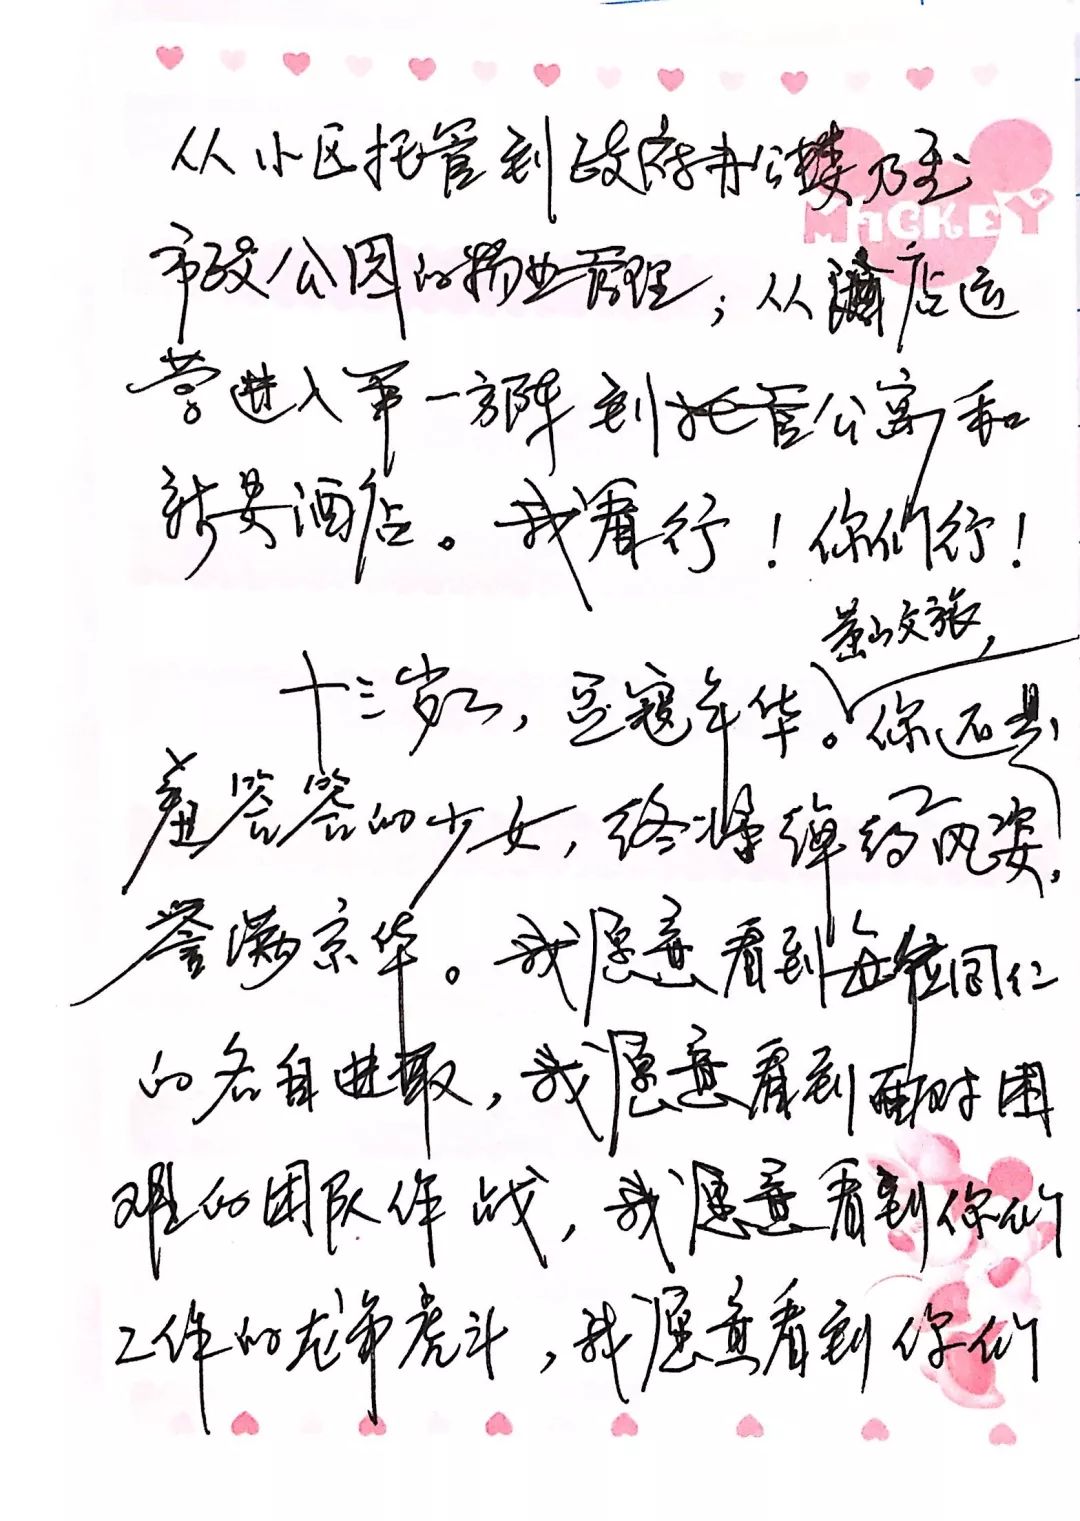 MICKEY
从小区托管到政府办公楼乃至
市政公园的物业管理；从酒店运
营进入第一方阵到托管公寓和
新景酒店。我看行！你们行！
景山文旅，
十三岁，豆蔻年华。你还是
羞答答的少女，终将绰约风姿，
誉满京华。我愿意看到每位同仁
的各自进取，我愿意看到面对困
难的团队作战，我愿意看到你们
工作的龙争虎斗，我愿意看到你们